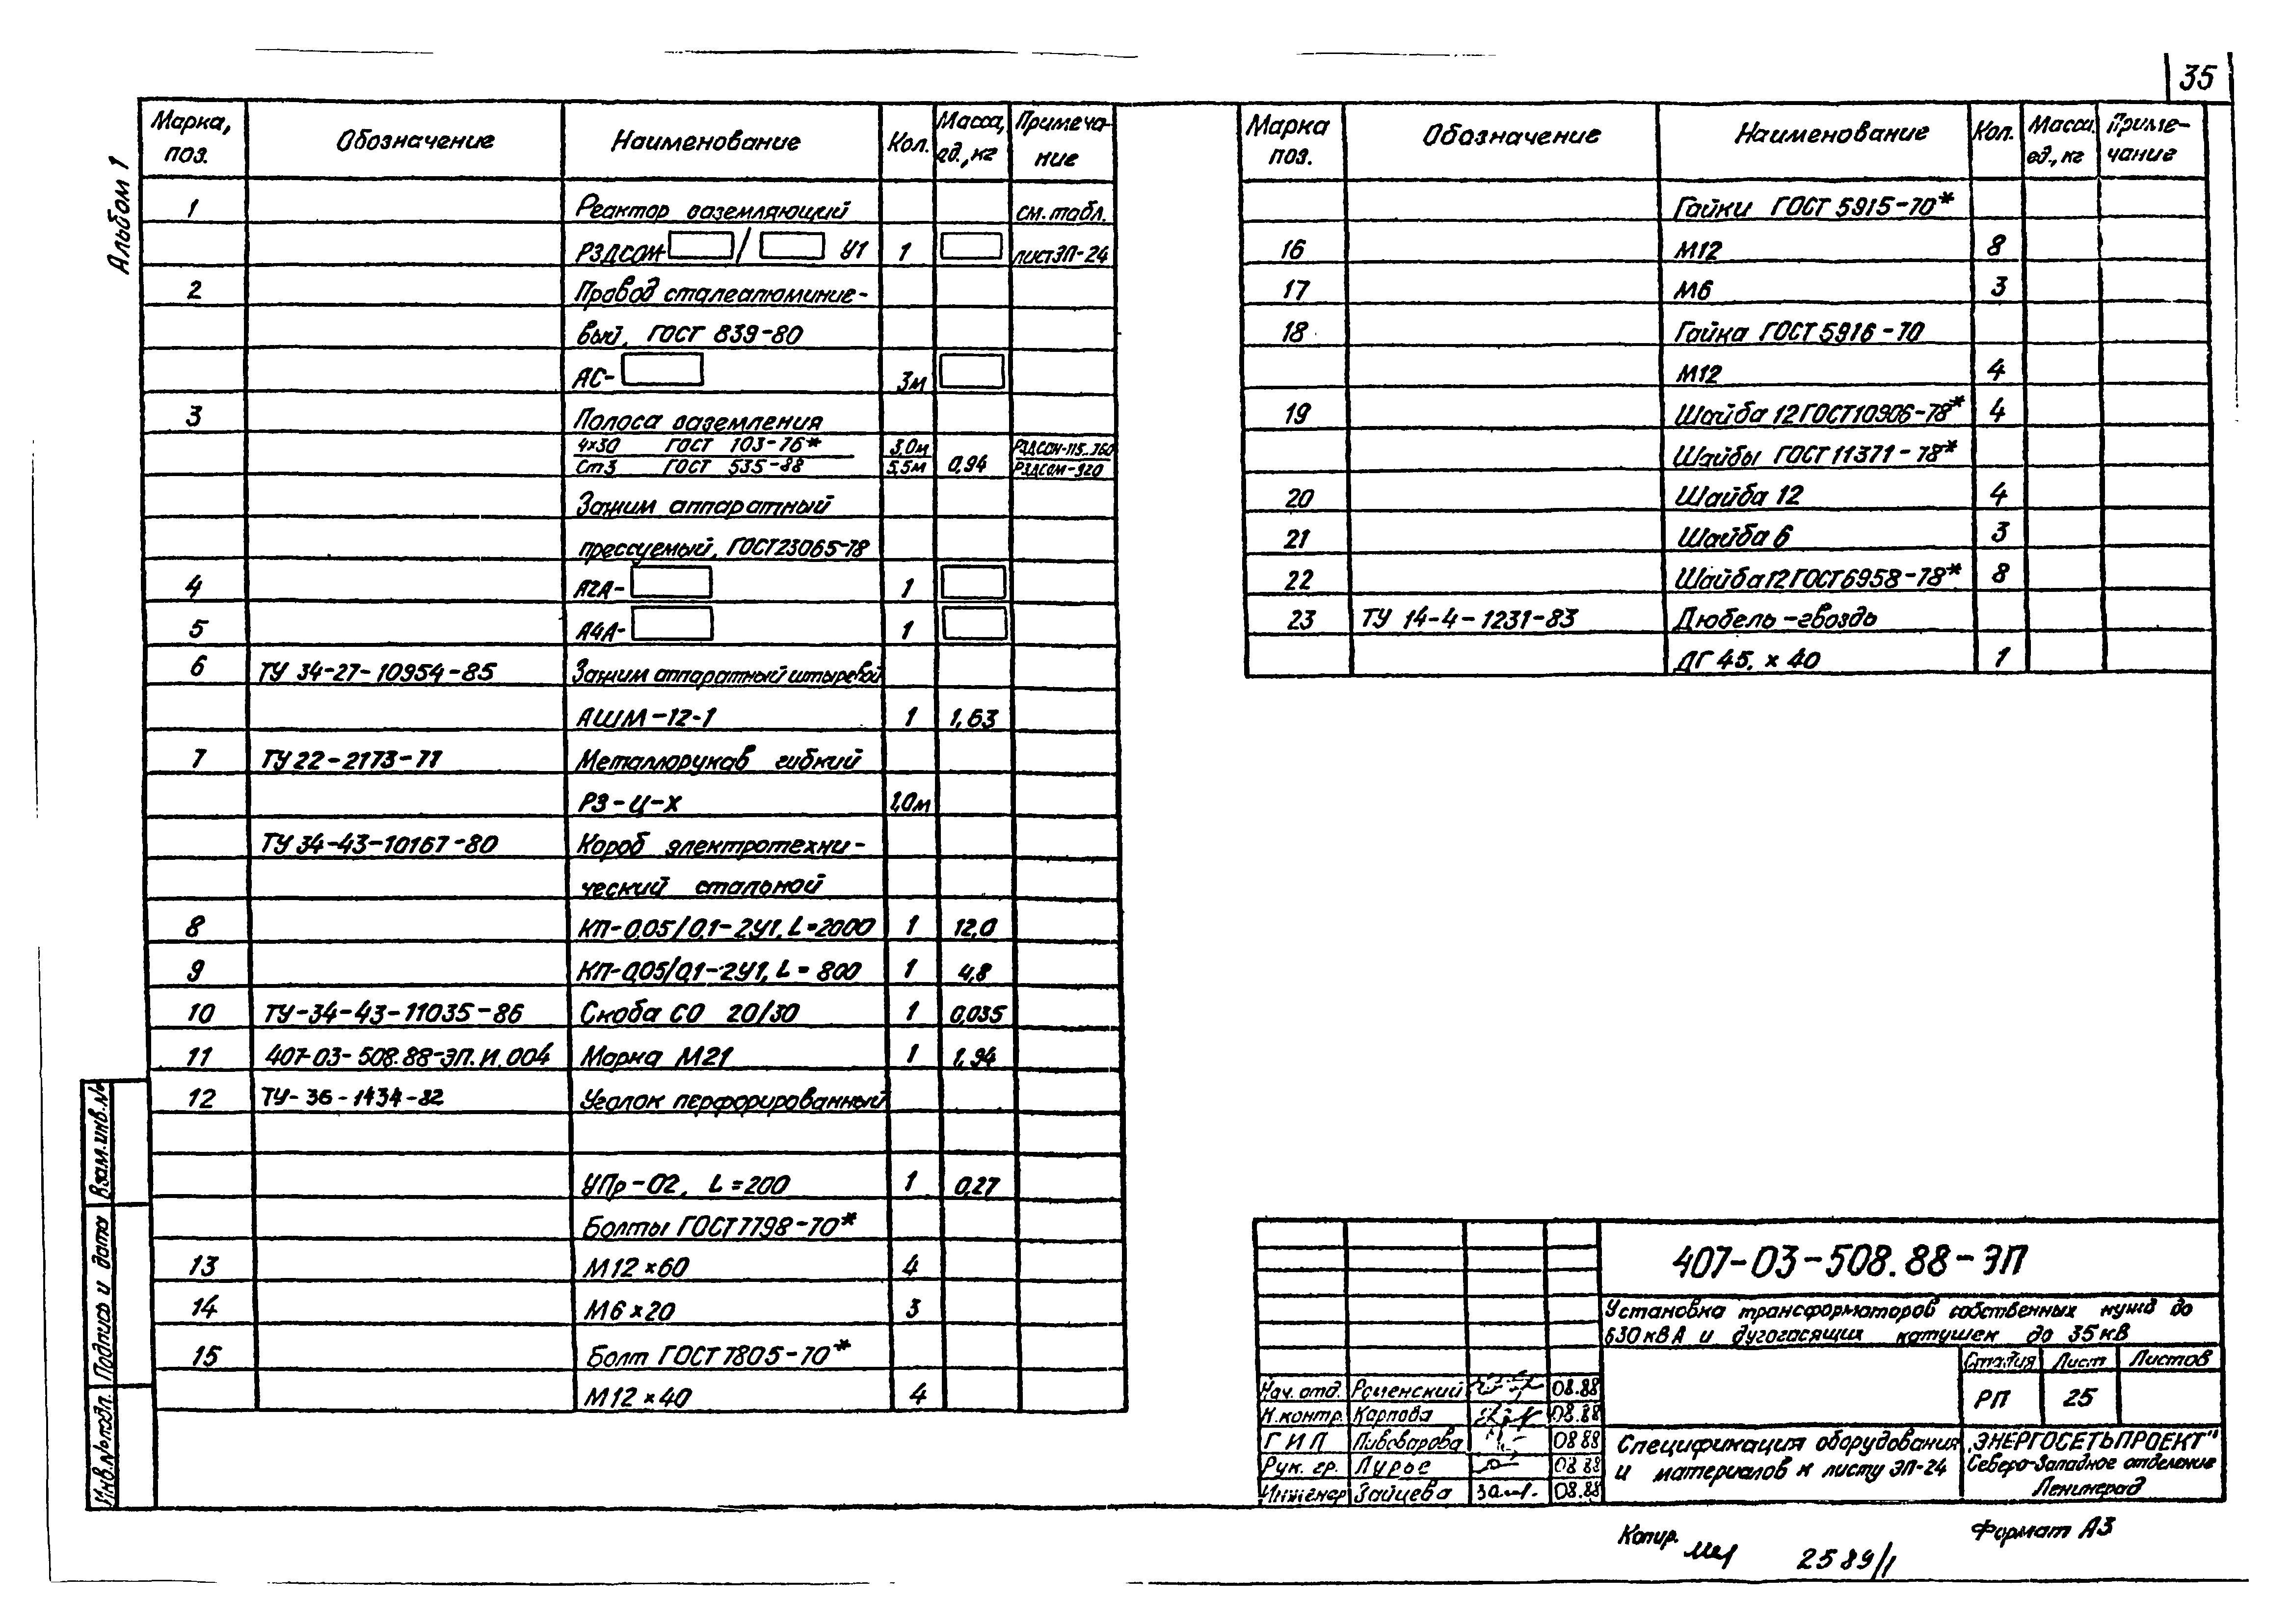 35
Альбом 1
Марка, поз. Обозначение Наименование Кол. Масса, ед., кг Примечание
1 Реактор заземляющий см. табл.
РЗДСОМ / У1 1 лист ЭП-24
2 Провод сталеалюминие-
вый, ГОСТ 839-80
АС- 3м
3 Полоса заземления
4×30 ГОСТ 103-76* 3,0м РЗДСОМ-115..760
Ст3 ГОСТ 535-88 5,5м 0,94 РЗДСОМ-920
Зажим аппаратный
прессуемый, ГОСТ 23065-78
4 А2А- 1
5 А4А- 1
6 ТУ 34-27-10954-85 Зажим аппаратный штыревой
АШМ-12-1 1 1,63
7 ТУ 22-2173-71 Металлорукав гибкий
РЗ-Ц-Х 1,0м
ТУ 34-43-10167-80 Короб электротехни-
ческий стальной
8 КП-0,05/0,1-2У1, L=2000 1 12,0
9 КП-0,05/0,1-2У1, L=800 1 4,8
10 ТУ-34-43-11035-86 Скоба СО 20/30 1 0,035
11 407-03-508.88-ЭП.И.004 Марка М21 1 1,94
12 ТУ-36-1434-82 Уголок перфорированный
УПр-02, L=200 1 0,27
Болты ГОСТ 7798-70*
13 М12×60 4
14 М6×20 3
15 Болт ГОСТ 7805-70*
М12×40 4
Марка поз. Обозначение Наименование Кол. Масса ед., кг Приме-чание
Гайки ГОСТ 5915-70*
16 М12 8
17 М6 3
18 Гайка ГОСТ 5916-70
М12 4
19 Шайба 12 ГОСТ 10906-78* 4
Шайбы ГОСТ 11371-78*
20 Шайба 12 4
21 Шайба 6 3
22 Шайба 12 ГОСТ 6958-78* 8
23 ТУ 14-4-1231-83 Дюбель-гвоздь
ДГ 45. × 40 1
Взам. инв. №
Подпись и дата
Инв. № подл.
407-03-508.88-ЭП
Установка трансформаторов собственных нужд до
630 кВА и дугогасящих катушек до 35 кВ
Стадия Лист Листов
РП 25
Нач. отд. Роменский 08.88
Н. контр. Карпова 08.88
ГИП Пивоварова 08 88
Рук. гр. Лурье 08 88
Инженер Зайцева 08.88
Спецификация оборудования
и материалов к листу ЭП-24
„ЭНЕРГОСЕТЬПРОЕКТ"
Северо-Западное отделение
Ленинград
Копир.
2589/1
Формат А3